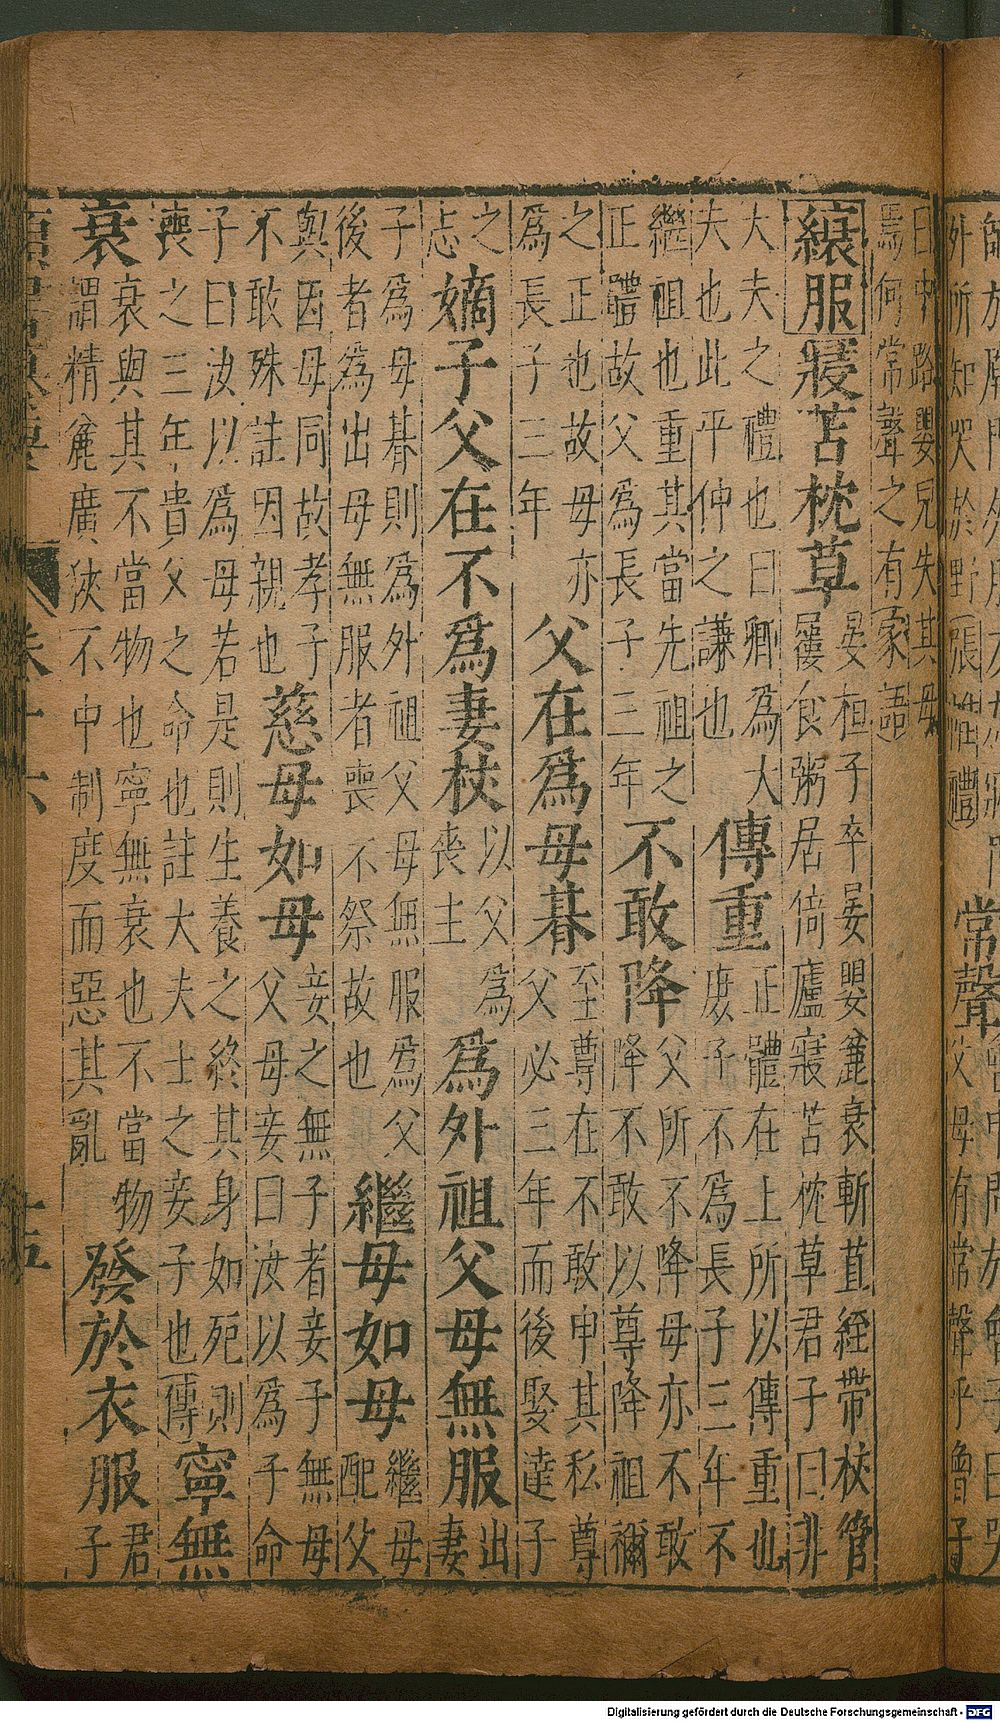 外所知哭於野 常聲 父母有常聲乎魯子
曰中路嬰兒失其母
焉何常聲之有家語
縗服 寢苫枕草 晏桓子卒晏嬰麄衰斬苴絰帶杖管
屨食粥居倚廬寢苫枕草君子曰非
大夫之禮也曰卿爲大
夫也此平仲之謙也 傳重 正體在上所以傳重也
庶子不爲長子三年不
繼祖也重其當先祖之
正體故父爲長子三年 不敢降 父所不降母亦不敢
降不敢以尊降祖禰
之正也故母亦
爲長子三年 父在爲母朞 至尊在不敢申其私尊
父必三年而後娶達子
之
志 嫡子父在不爲妻杖 以父爲
喪主 爲外祖父母無服 出
妻
子爲母朞則爲外祖父母無服爲父
後者爲出母無服者喪不祭故也 繼母如母 繼母
配父
與因母同故孝子
不敢殊註因親也 慈母如母 妾之無子者妾子無母
父母妾曰汝以爲子命
子曰汝以爲母若是則生養之終其身如死則
喪之三年貴父之命也註大夫士之妾子也傳 寧無
衰 衰與其不當物也寧無衰也不當物
謂精麄廣狹不中制度而惡其亂 發於衣服 君
子
卷十六
十五
Digitalisierung gefördert durch die Deutsche Forschungsgemeinschaft - DFG